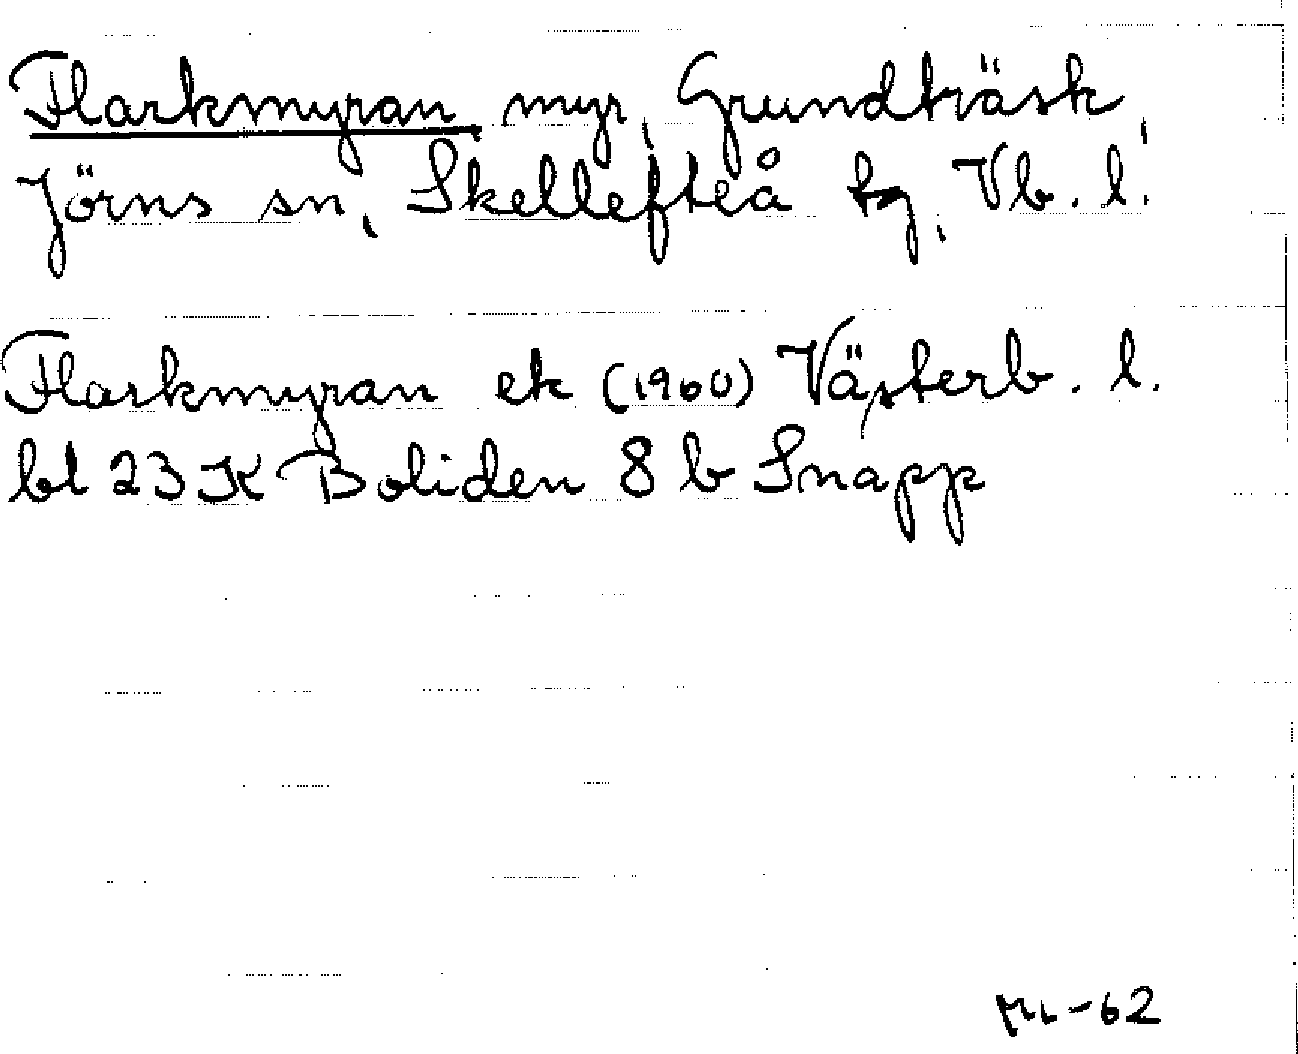 Flarkmyran myr, Grundträsk,
Jörns sn, Skellefteå tg, Vb. l.
Flarkmyran ek (1960) Västerb. l.
bl 23 K Boliden 8 b Snapp
-62